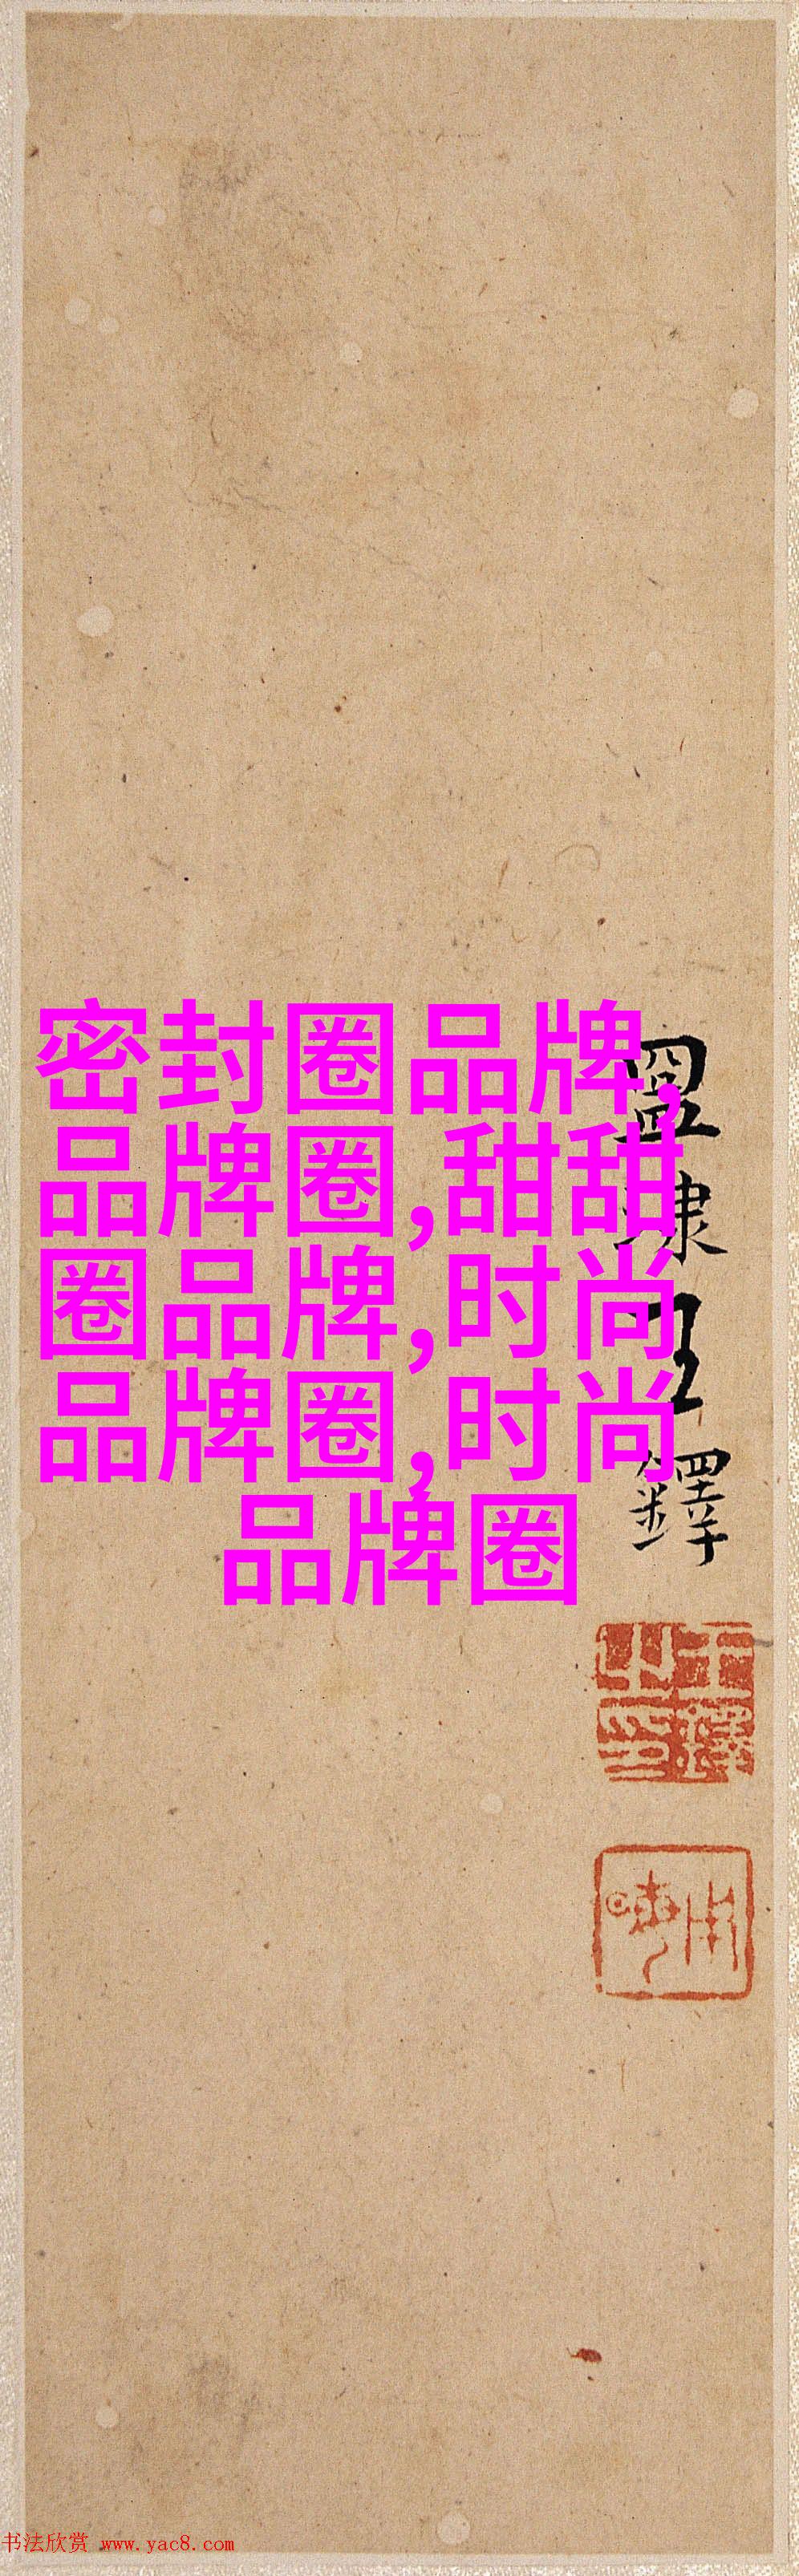 密封圈品牌,
品牌圈,甜甜
圈品牌,时尚
品牌圈,时尚
品牌圈
王鐸
王鐸之印
书法欣赏 www.yac8.com